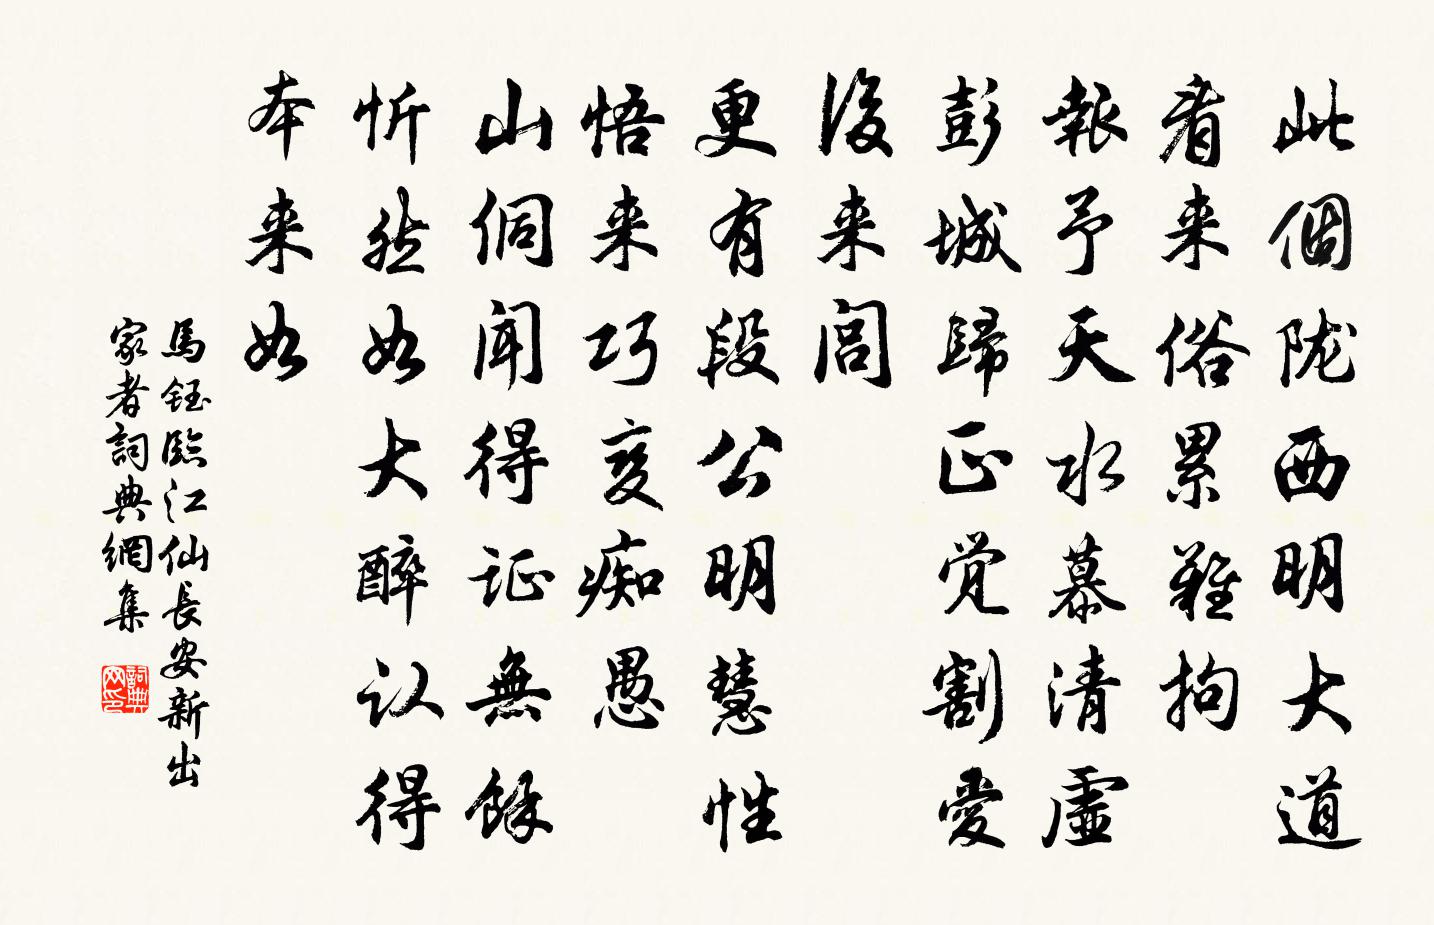 此個陇西明大道
看来俗累難拘
報予天水慕清虚
彭城歸正觉割愛
後来闾
更有段公明慧性
悟来巧变痴愚
山侗闻得证無餘
忻然如大醉认得
本来如
馬鈺臨江仙長安新出
家者詞典網集
詞典网印